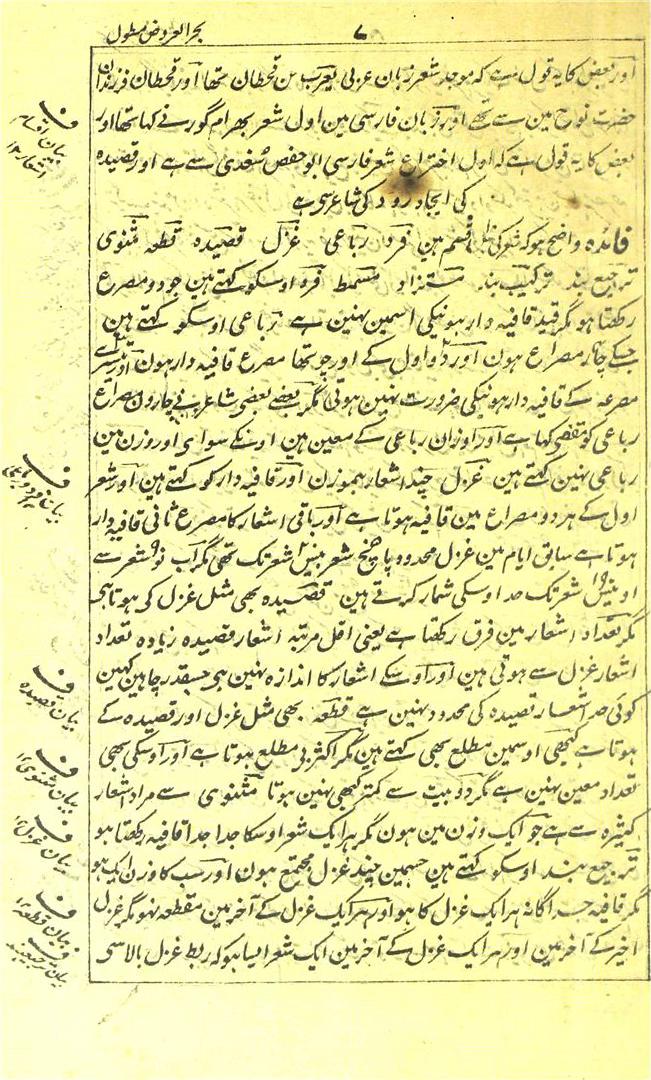 ۷
بحر العروض مطول
اور بعض کا یہ قول ہے کہ موجد شعر زبان عربی یعرب بن قحطان تھا اور قحطان فرزندان
حضرت نوح مین سے تھے اور زبان فارسی مین اول شعر بہرام گور نے کہا تھا اور
بعض کا یہ قول ہے کہ اول اختراع شعر فارسی ابو حفص سغدی سے ہے اور قصیدہ
کی ایجاد رودکی شاعر سے ہی
ف بیان اقسام اشعار ۱۲
فائدہ واضح ہو کہ شعر کی قسم ہین فرد رباعی غزل قصیدہ قطعہ مثنوی
ترجیع بند ترکیب بند مستزاد مسمط فرد اوسکو کہتے ہین جو دو مصرع
رکھتا ہو مگر قید قافیہ دار ہونیکی اسمین نہین ہے رباعی اوسکو کہتے ہین
جسکے چار مصراع ہون اور دو اول کے اور چوتھا مصرع قافیہ دار ہون اور تیسرے
مصرعہ کے قافیہ دار ہونیکی ضرورت نہین ہوتی مگر بعضے بعضی شاعر نے چارون مصراع
رباعی کو مقفی کہا ہے اور اوزان رباعی کے معین ہین اونکے سوای اور وزن مین
ف
رباعی نہین کہتے ہین غزل چند اشعار ہموزن اور قافیہ دار کو کہتے ہین اور شعر
اول کے ہر دو مصراع مین قافیہ ہوتا ہے اور باقی اشعار کا مصرع ثانی قافیہ دار
ہوتا ہے سابق ایام مین غزل محدودہ پانچ شعر بیس شعر تک تھی مگر اب نو شعر سے
اونیس شعر تک حد اوسکی شمار کرتے ہین قصیدہ بھی مثل غزل کی ہوتا ہی
مگر تعداد اشعار مین فرق رکھتا ہے یعنی اقل مرتبہ اشعار قصیدہ زیادہ تعداد
اشعار غزل سے ہوتی ہین اور اوسکے اشعار کا اندازہ نہین ہی جسقدر چاہین کہین
ف بیان قصیدہ
کوئی حد اشعار قصیدہ کی محدود نہین ہے قطعہ بھی مثل غزل اور قصیدہ کے
ہوتا ہے کبھی اوسمین مطلع بھی کہتے ہین مگر اکثر بی مطلع ہوتا ہے اور اوسکی بھی
ف بیان مثنوی ۱۲
تعداد معین نہین ہے مگر دو بیت سے کمتر کبھی نہین ہوتا مثنوی سے مراد اشعار
کثیرہ سے ہے جو ایک وزن مین ہون مگر ہر ایک شعر اوسکا جدا جدا قافیہ رکھتا ہو
ف بیان غزل ۱۲
ترجیع بند اوسکو کہتے ہین جسمین چند غزل مجتمع ہون اور سب کا وزن ایک ہو
مگر قافیہ جداگانہ ہر ایک غزل کا ہو اور ہر ایک غزل کے آخر مین مقطعہ نہو مگر غزل
ف بیان قطعہ ۱۲
اخیر کے آخر مین اور ہر ایک غزل کے آخر مین ایک شعر ایسا ہو کہ ربط غزل بالا سی
ف بیان ترجیع بند